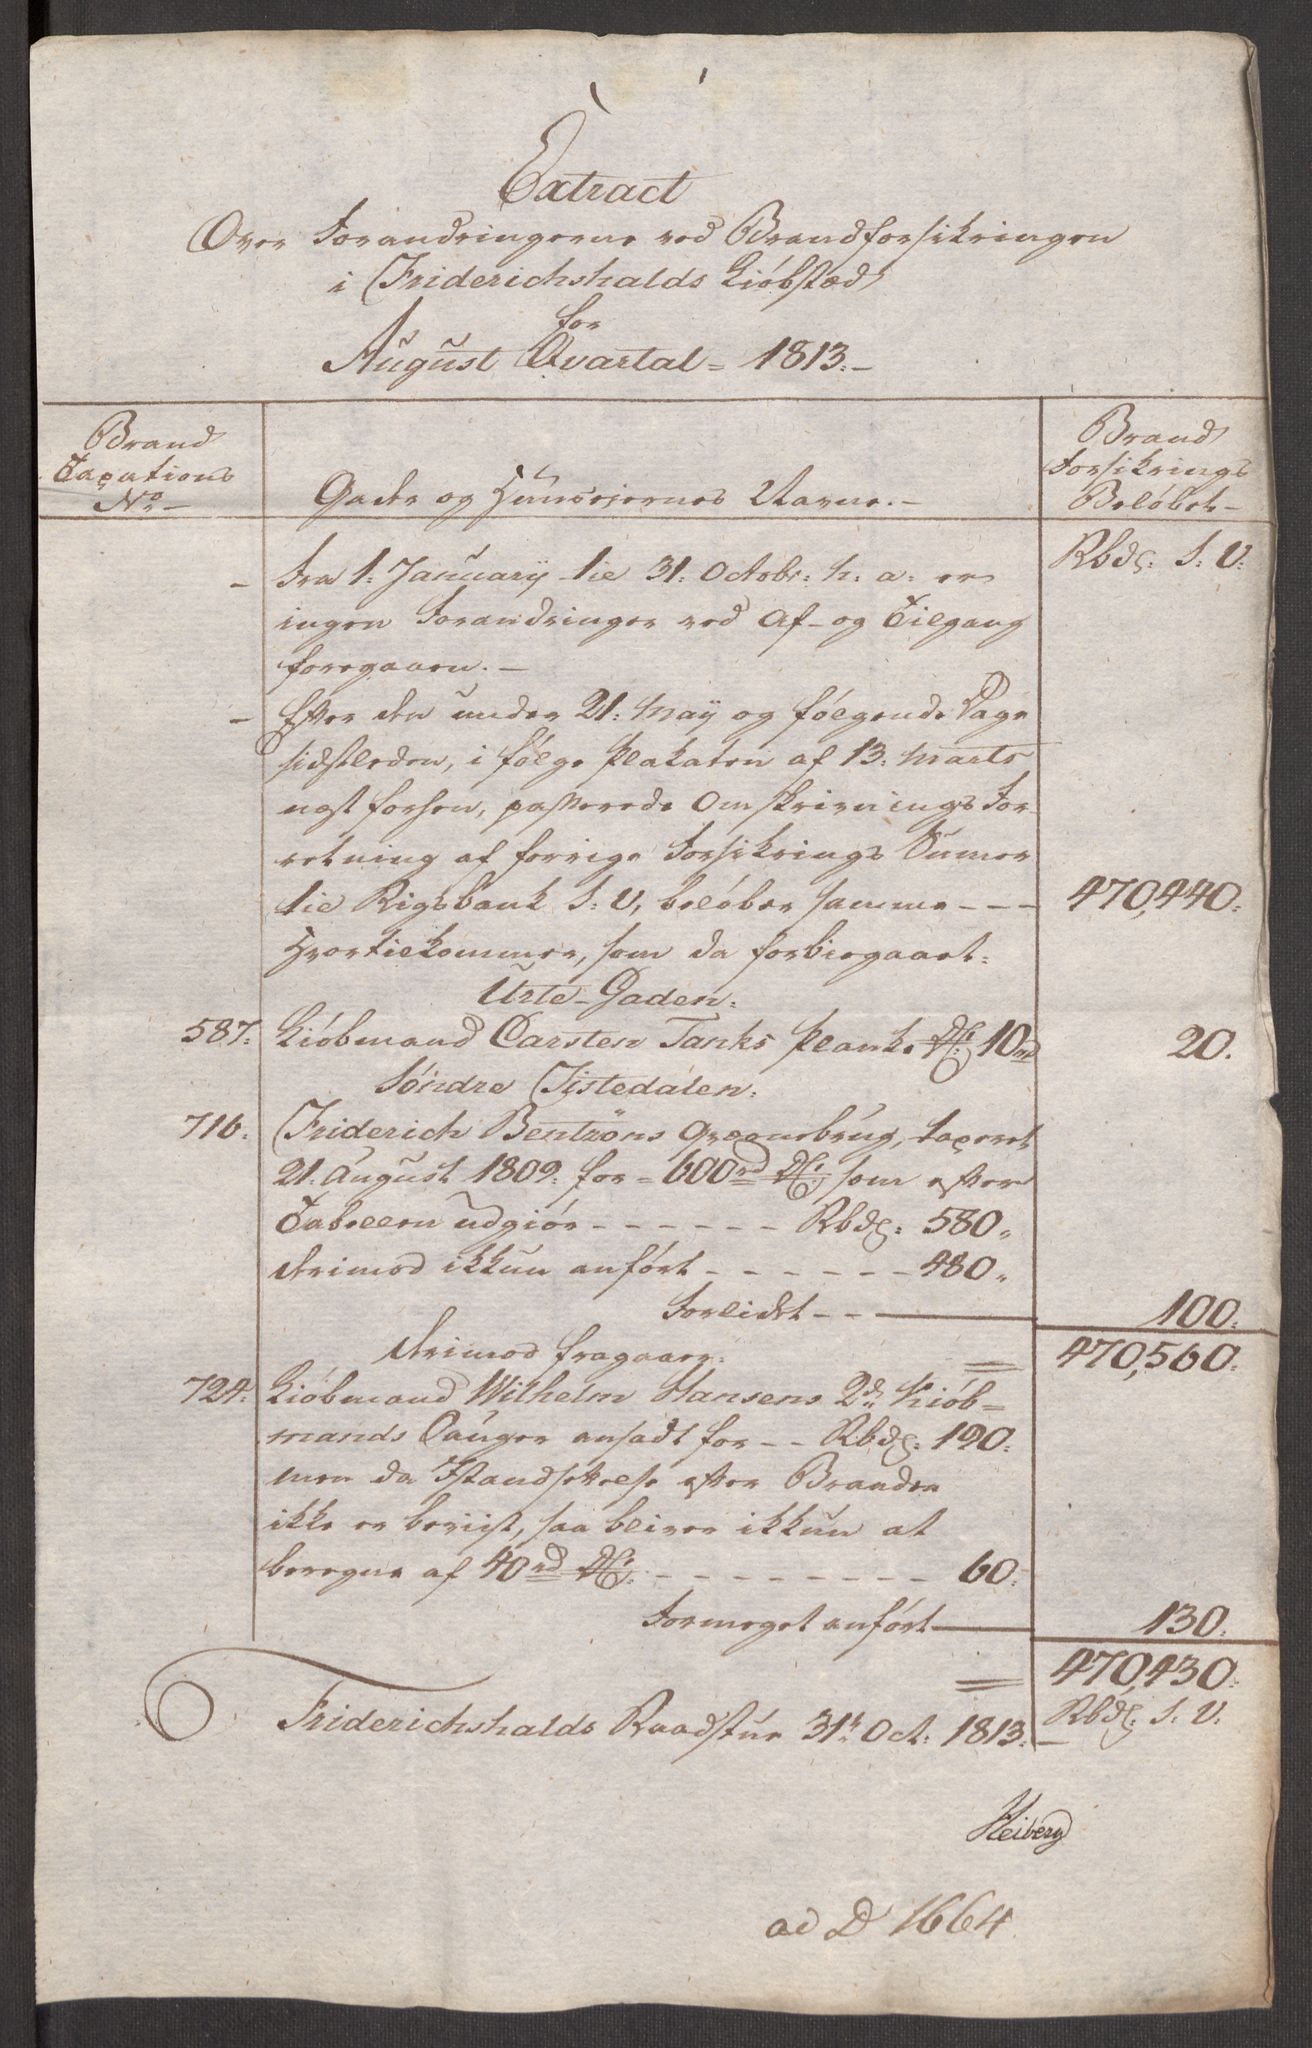 Extract
Over Forandringerne ved Brandforsikringen
i Friderichshalds Kiöbstæd
for
August Qvartal = 1813.-
Brand Taxations No -
Gader og Huuseiernes Navne. -
Brand Forsikrings Belöbet -
Rbdr: S. V:
- Fra 1: Januarÿ til 31: Octobr: h: a: er
ingen Forandringer ved Af- og Tilgang
foregaaen. -
- Efter den under 21: Maÿ og fölgende Dage
sidstleden, i fölge Plakaten af 13: Marts
næst forhen, passerede Omskrivnings For-
retning af forrige Forsikrings Summer
til Rigsbank S: V, belöber samme - - - 470,440:
Hvortilkommer, som da forbiegaaet:
Urte-Gaden:
587: Kiöbmand Carsten Tanks Plank 10rd 20.
Söndre Tistedalen:
716: Friderich Bentzöns Oppgangbrug, taxeret
21. August 1809: for = 600rd som efter
Tabellen udgiör - - - - - - Rbdr: 580„
derimod ikkun anfört - - - - - - 480„
Forlidet - - 100:
470,560:
Derimod fragaaer:
724: Kiöbmand Wilhelm Hansens 2de Kiöb=
mands Vaaninger ansadt for - - Rbdr: 190:
men da Istandsettelse efter Branden
ikke er beviist, saa bliver ikkun at
beregne af 40rd - - - - - - - - - 60:
Formeget anfört 130:
470,430:
Rbdr: S. V.
Friderichshalds Raadstue 31t Oct: 1813: -
Heiberg
ad D 1664